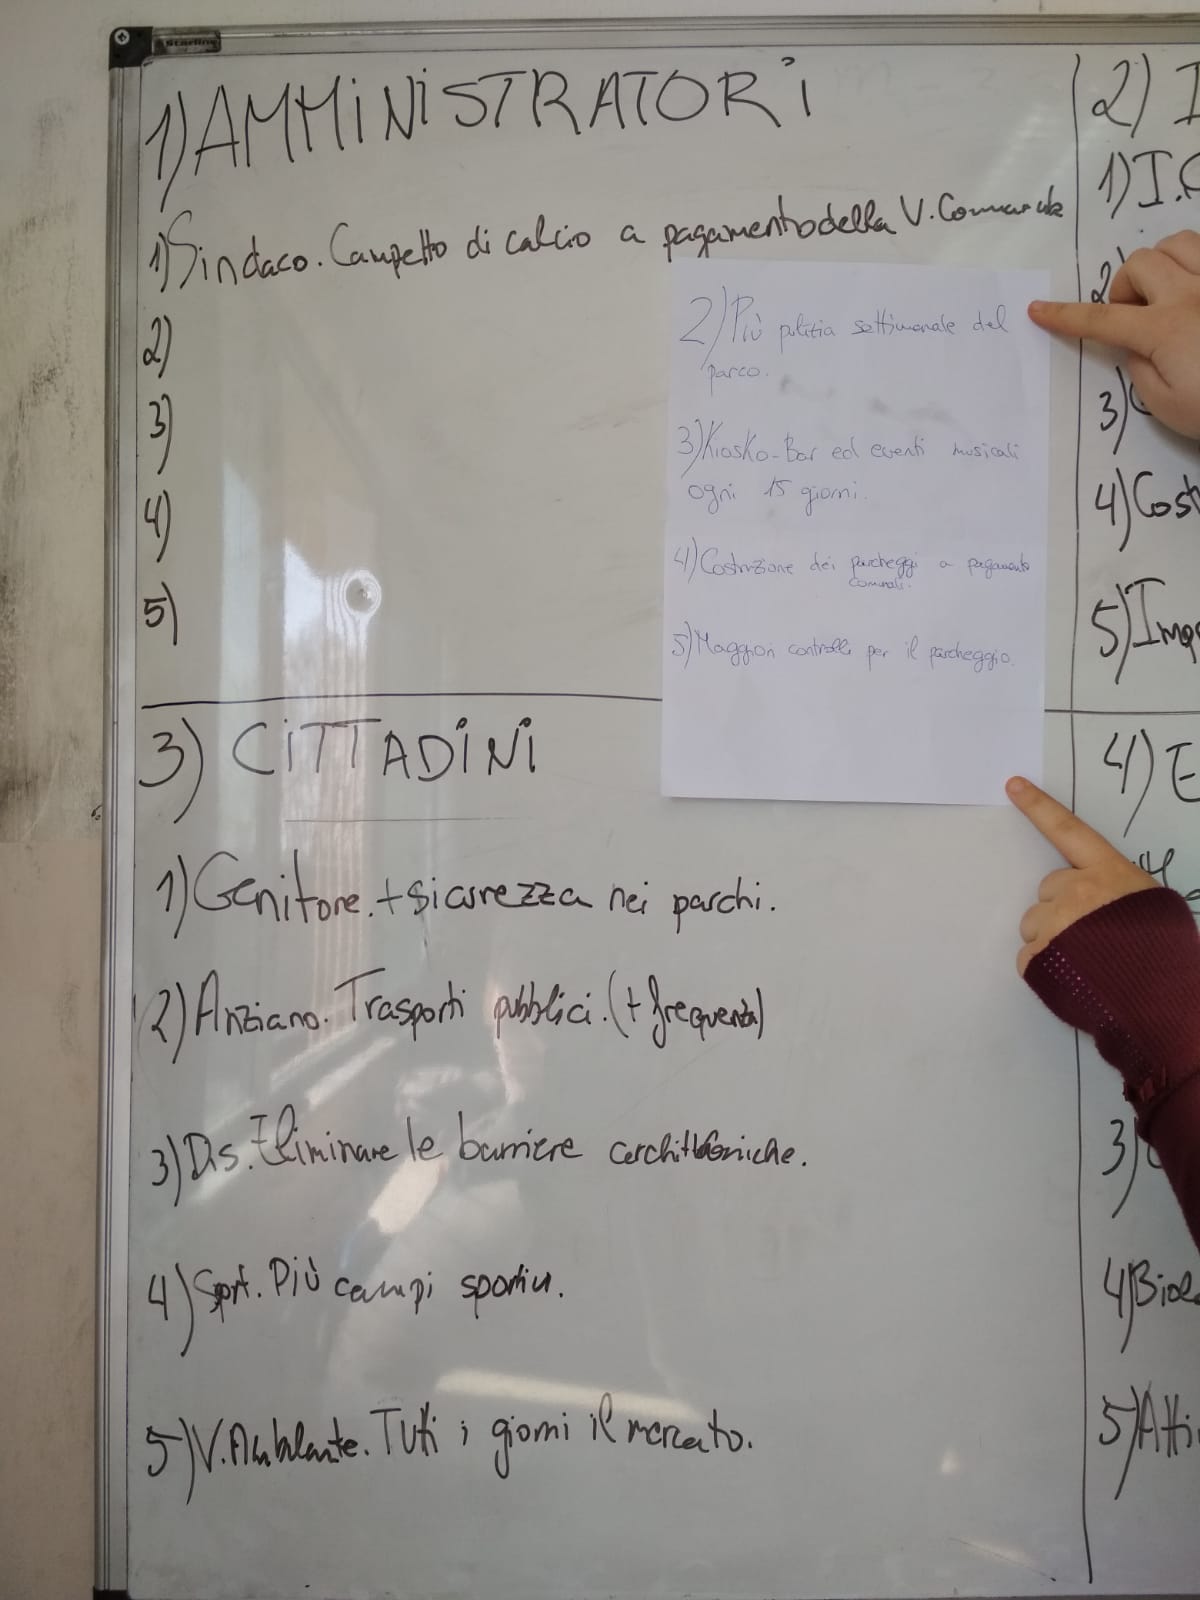 Starline
1) AMMINISTRATORI
1) Sindaco. Campetto di calcio a pagamento della V. Comunale
2)
3)
4)
5)
2) Più pulizia settimanale del
parco.
3) Kiosko-Bar ed eventi musicali
ogni 15 giorni.
4) Costruzione dei parcheggi a pagamento
comunali.
5) Maggiori controlli per il parcheggio.
3) CITTADINI
1) Genitore. + sicurezza nei parchi.
2) Anziano. Trasporti pubblici. (+ frequenza)
3) Dis. Eliminare le barriere architettoniche.
4) Sport. Più campi sportivi.
5) V. Ambulante. Tutti i giorni il mercato.
2) I
1) I.
2)
3)
4) Cost
5) Imp
4) E
3)
4) Bio
5) Atti